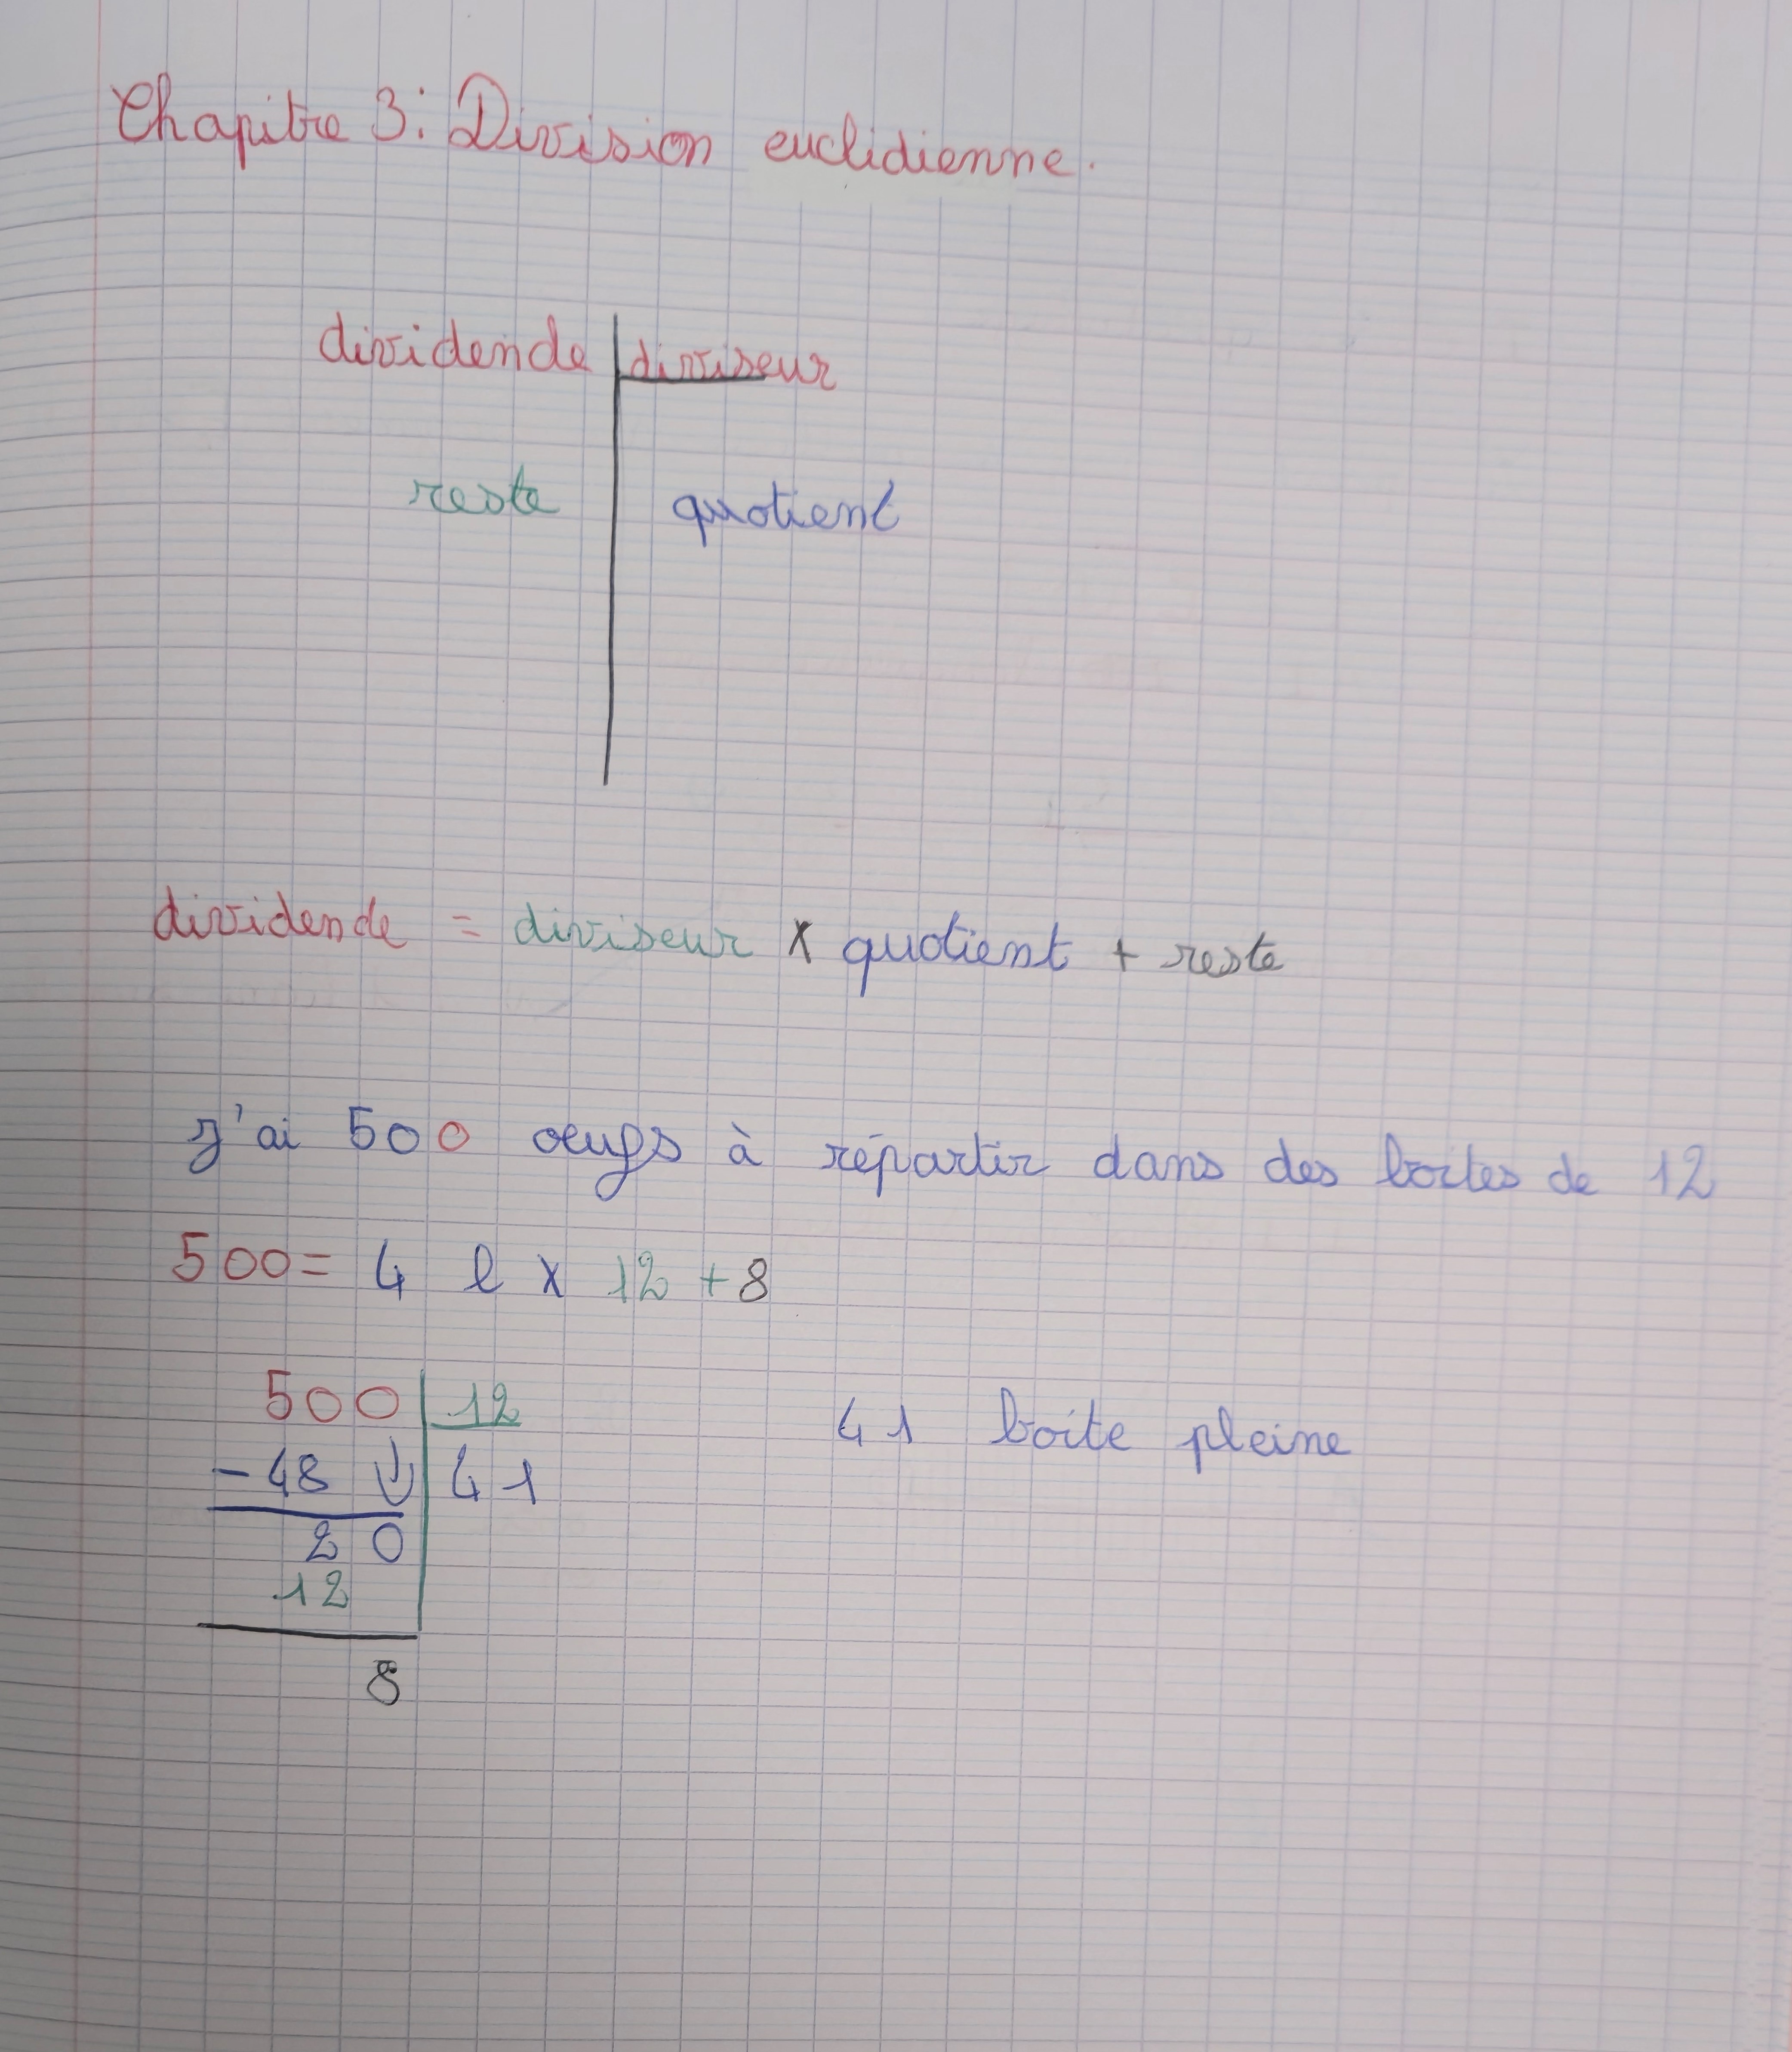 Chapitre 3: Division euclidienne.
dividende diviseur
reste quotient
dividende = diviseur x quotient + reste
J'ai 500 oeufs à répartir dans des boites de 12
500= 4 l x 12 +8
500 12
-48 ↓ 41 41 boite pleine
20
12
8